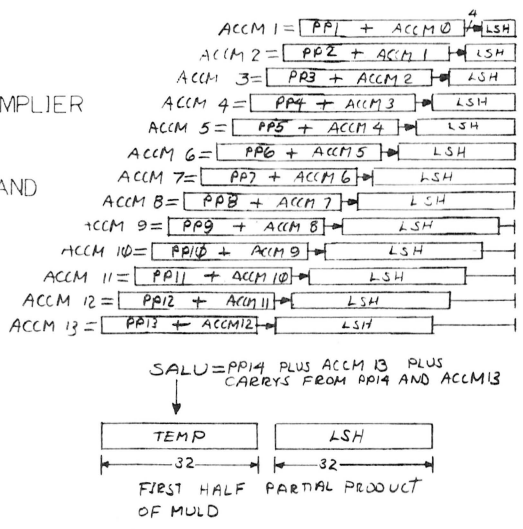 4
ACCM 1 = PP1 + ACCM Ø LSH
ACCM 2 = PP2 + ACCM 1 LSH
ACCM 3 = PP3 + ACCM 2 LSH
MPLIER ACCM 4 = PP4 + ACCM 3 LSH
ACCM 5 = PP5 + ACCM 4 LSH
ACCM 6 = PP6 + ACCM 5 LSH
AND ACCM 7 = PP7 + ACCM 6 LSH
ACCM 8 = PP8 + ACCM 7 LSH
ACCM 9 = PP9 + ACCM 8 LSH
ACCM 1Ø = PP1Ø + ACCM 9 LSH
ACCM 11 = PP11 + ACCM 1Ø LSH
ACCM 12 = PP12 + ACCM 11 LSH
ACCM 13 = PP13 + ACCM12 LSH
SALU = PP14 PLUS ACCM 13 PLUS
CARRYS FROM PP14 AND ACCM13
TEMP LSH
32 32
FIRST HALF PARTIAL PRODUCT
OF MULD